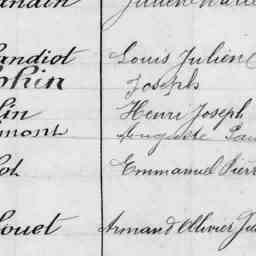 Landiot Louis Julien
phin Joseph
lin Henri Joseph
mont Auguste
lot Emmanuel Pierr
louet Armand Ollivier Ju